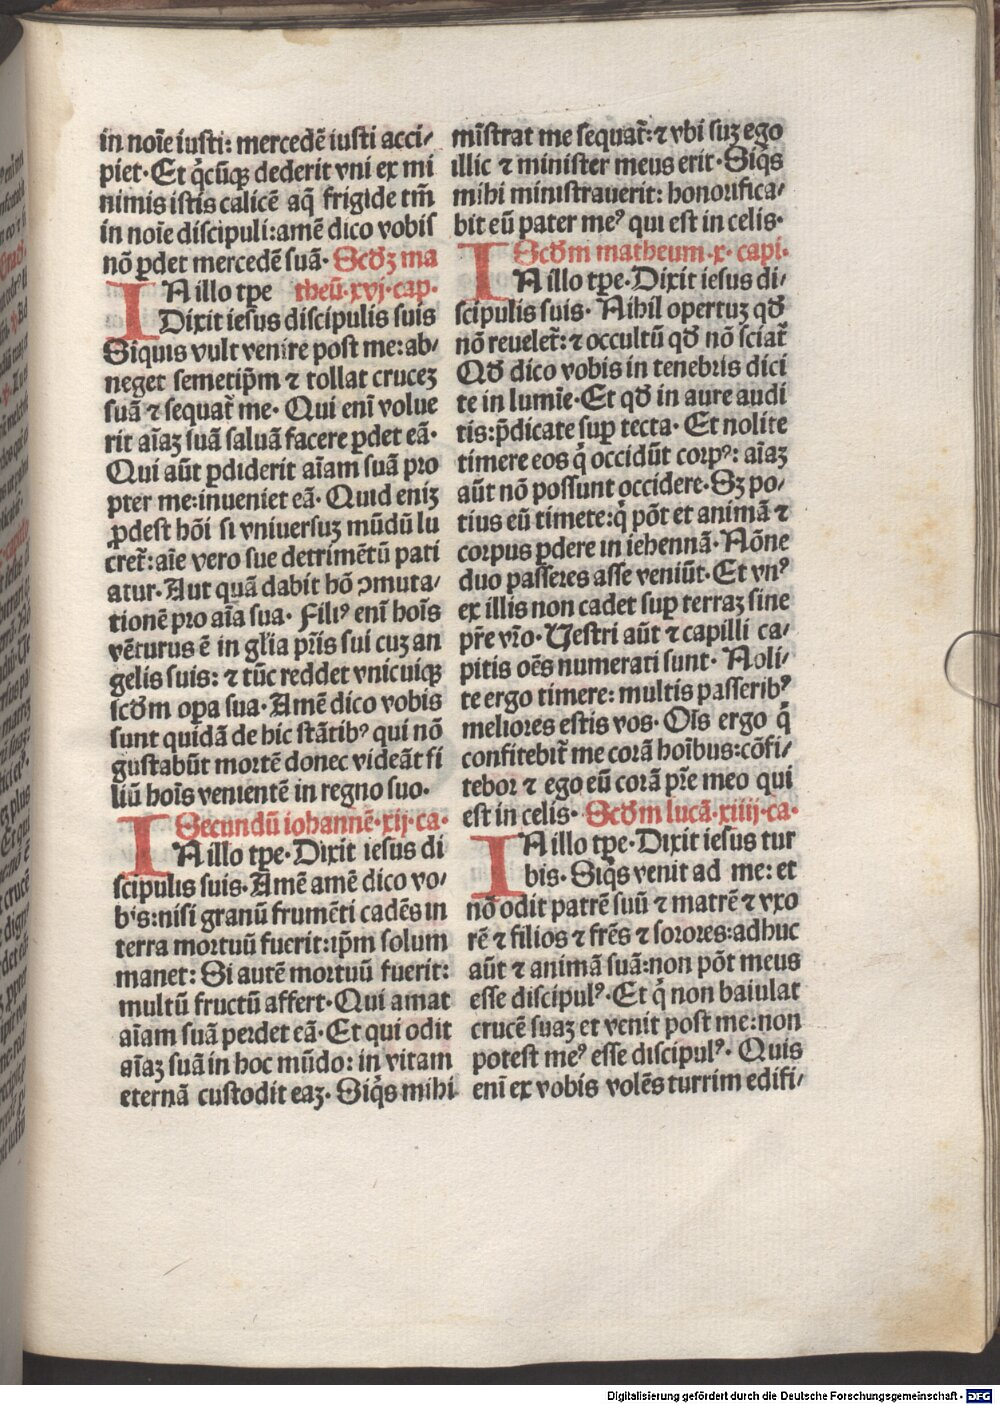 in noīe iusti: mercedē iusti acci/
piet· Et q̇cūqꝫ dederit vni ex mi
nimis istis calicē aq̄ frigide tm̄
in noīe discipuli: amē dico vobis
nō ꝑdet mercedē suā· Scd̓ꝫ ma
IN illo tꝑe theū·xvj·cap·
Dixit iesus discipulis suis
Siquis vult venire post me: ab/
neget semetip̄m ⁊ tollat cruceꝫ
suā ⁊ sequat᷑ me· Qui enī volue
rit aīaꝫ suā saluā facere ꝑdet eā·
Qui aūt ꝑdiderit aīam suā pro
pter me: inueniet eā· Quid eniꝫ
ꝓdest hōi si vniuersuꝫ mūdū lu
cret᷑: aīe vero sue detrimētū pati
atur· Aut quā dabit hō ꝯmuta/
tionē pro aīa sua· Filiꝰ enī hoīs
vēturus ē in gl̄ia pr̄is sui cuꝫ an
gelis suis: ⁊ tūc reddet vnicuiqꝫ
scd̓m oꝑa sua· Amē dico vobis
sunt quidā de hic stātibꝰ qui nō
gustabūt mortē donec videāt fi
liū hoīs venientē in regno suo·
Secundū iohannē·xij·ca·
IN illo tꝑe· Dixit iesus di
scipulis suis· Amē amē dico vo/
bis: nisi granū frumēti cadēs in
terra mortuū fuerit: ip̄m solum
manet: Si autē mortuū fuerit:
multū fructū affert· Qui amat
aīam suā perdet eā· Et qui odit
aīaꝫ suā in hoc mūdo: in vitam
eternā custodit eaꝫ· Siq̇s mihi
mīstrat me sequat᷑: ⁊ vbi suꝫ ego
illic ⁊ minister meus erit· Siq̇s
mihi ministrauerit: honorifica/
bit eū pater meꝰ qui est in celis·
Scd̓m matheum·x·capi·
IN illo tꝑe· Dixit iesus di/
scipulis suis· Nihil opertuꝫ qd̓
nō reuelet᷑: ⁊ occultū qd̓ nō sciat᷑
Qd̓ dico vobis in tenebris dici
te in lumīe· Et qd̓ in aure audi
tis: p̄dicate suꝑ tecta· Et nolite
timere eos q̇ occidūt corpꝰ: aīaꝫ
aūt nō possunt occidere· Sꝫ po/
tius eū timete: q̇ pōt et animā ⁊
corpus ꝑdere in iehennā· Nōne
duo passeres asse veniūt· Et vnꝰ
ex illis non cadet suꝑ terraꝫ sine
pr̄e vr̄o· Uestri aūt ⁊ capilli ca/
pitis oēs numerati sunt· Noli/
te ergo timere: multis passeribꝰ
meliores estis vos· Oīs ergo q̇
confitebit᷑ me corā hoībus: cōfi/
tebor ⁊ ego eū corā pr̄e meo qui
est in celis· Scd̓m lucā·xiiij·ca·
IN illo tꝑe· Dixit iesus tur
bis· Siq̇s venit ad me: et
nō odit patrē suū ⁊ matrē ⁊ vxo
rē ⁊ filios ⁊ fr̄es ⁊ sorores: adhuc
aūt ⁊ animā suā: non pōt meus
esse discipulꝰ· Et q̇ non baiulat
crucē suaꝫ et venit post me: non
potest meꝰ esse discipulꝰ· Quis
enī ex vobis volēs turrim edifi/
Digitalisierung gefördert durch die Deutsche Forschungsgemeinschaft · DFG